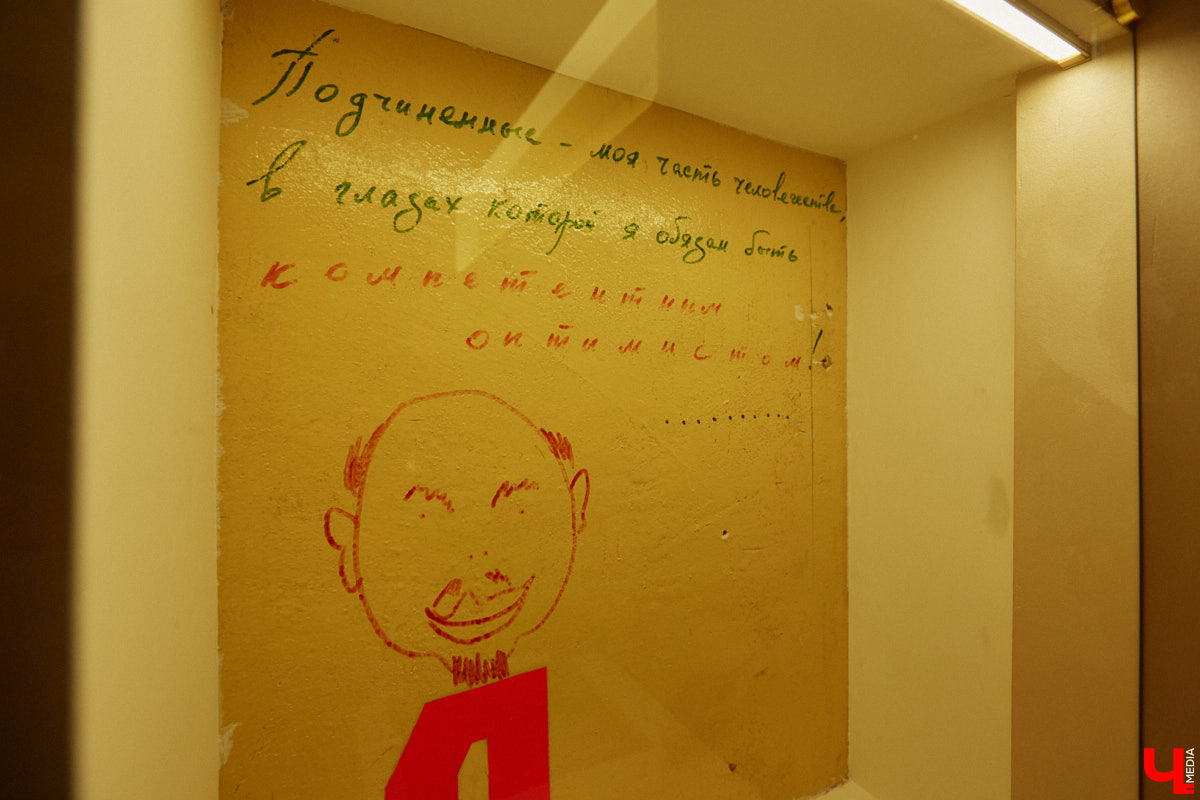 Подчиненные - моя часть человечества,
в глазах которой я обязан быть
компетентным
оптимистом!
..........
Ч MEDIA